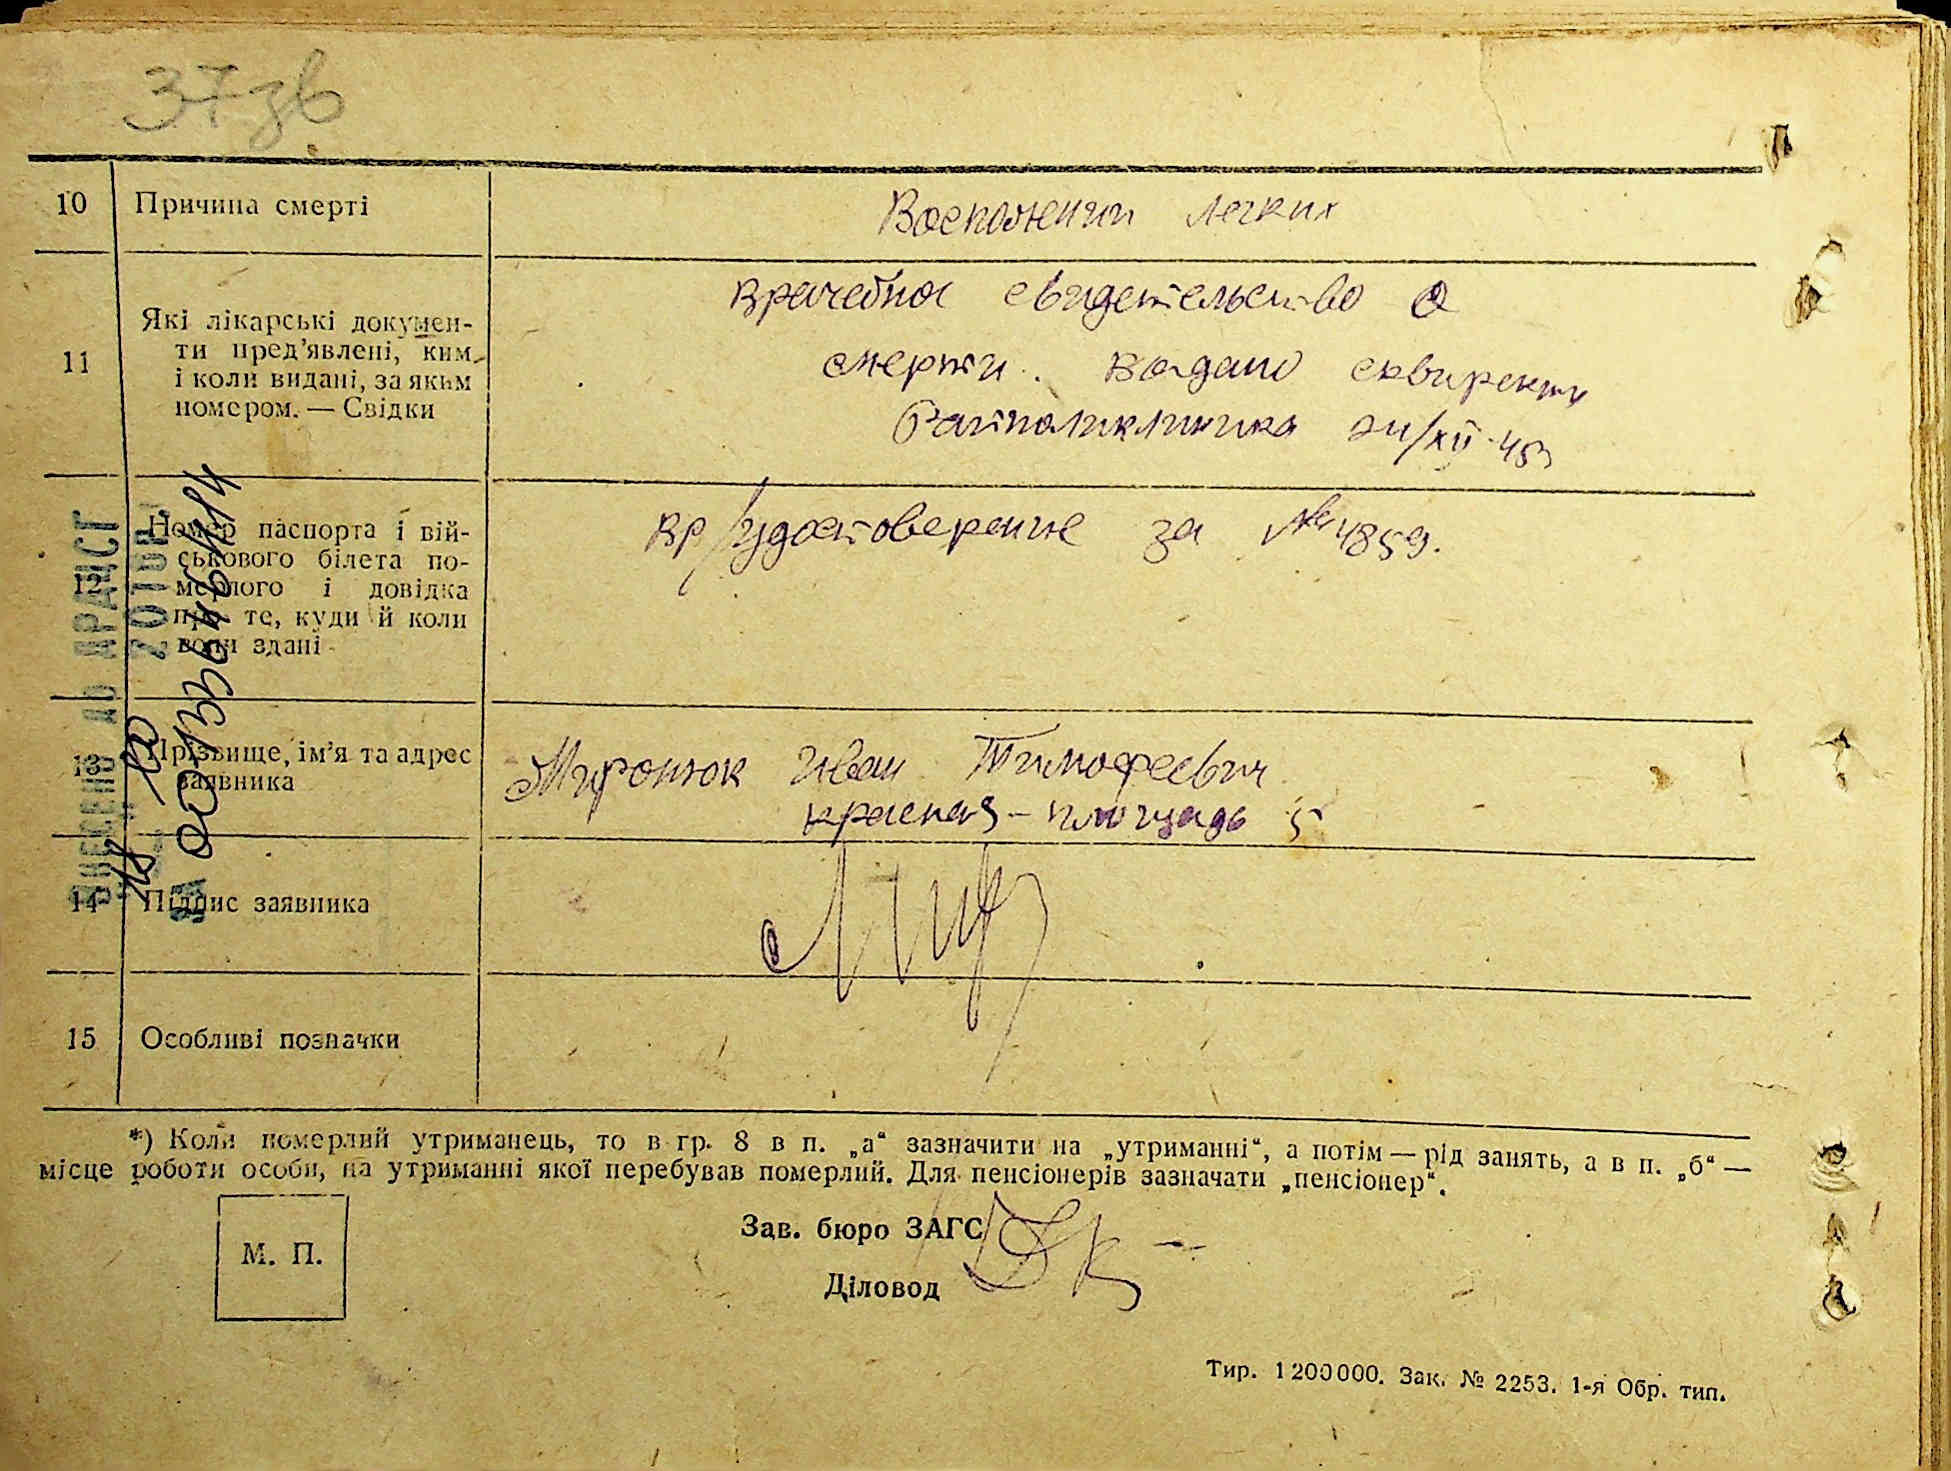 37зв
10 Причина смерті Воспаления легких
11 Які лікарські докумен-
ти пред’явлені, ким
і коли видані, за яким
номером. — Свідки
врачебное свидетельство о
смерти. выдано сквирской
Райполиклиника 24/XII-45
12 Номер паспорта і вій-
ськового білета по-
мерлого і довідка
про те, куди й коли
вони здані
вр/удостоверение за № 4859.
13 Прізвище, ім’я та адрес
заявника
Миронюк Иван Тимофеевич
красная-площадь 5
14 Підпис заявника
15 Особливі позначки
ВНЕСЕНО ДО ДРАЦСГ
ЗА ПОТОЧ
*) Коли померлий утриманець, то в гр. 8 в п. „а“ зазначити на „утриманні“, а потім — рід занять, а в п. „б“ —
місце роботи особи, на утриманні якої перебував померлий. Для пенсіонерів зазначати „пенсіонер“.
М. П.
Зав. бюро ЗАГС
Діловод
Тир. 1200000. Зак. № 2253. 1-я Обр. тип.